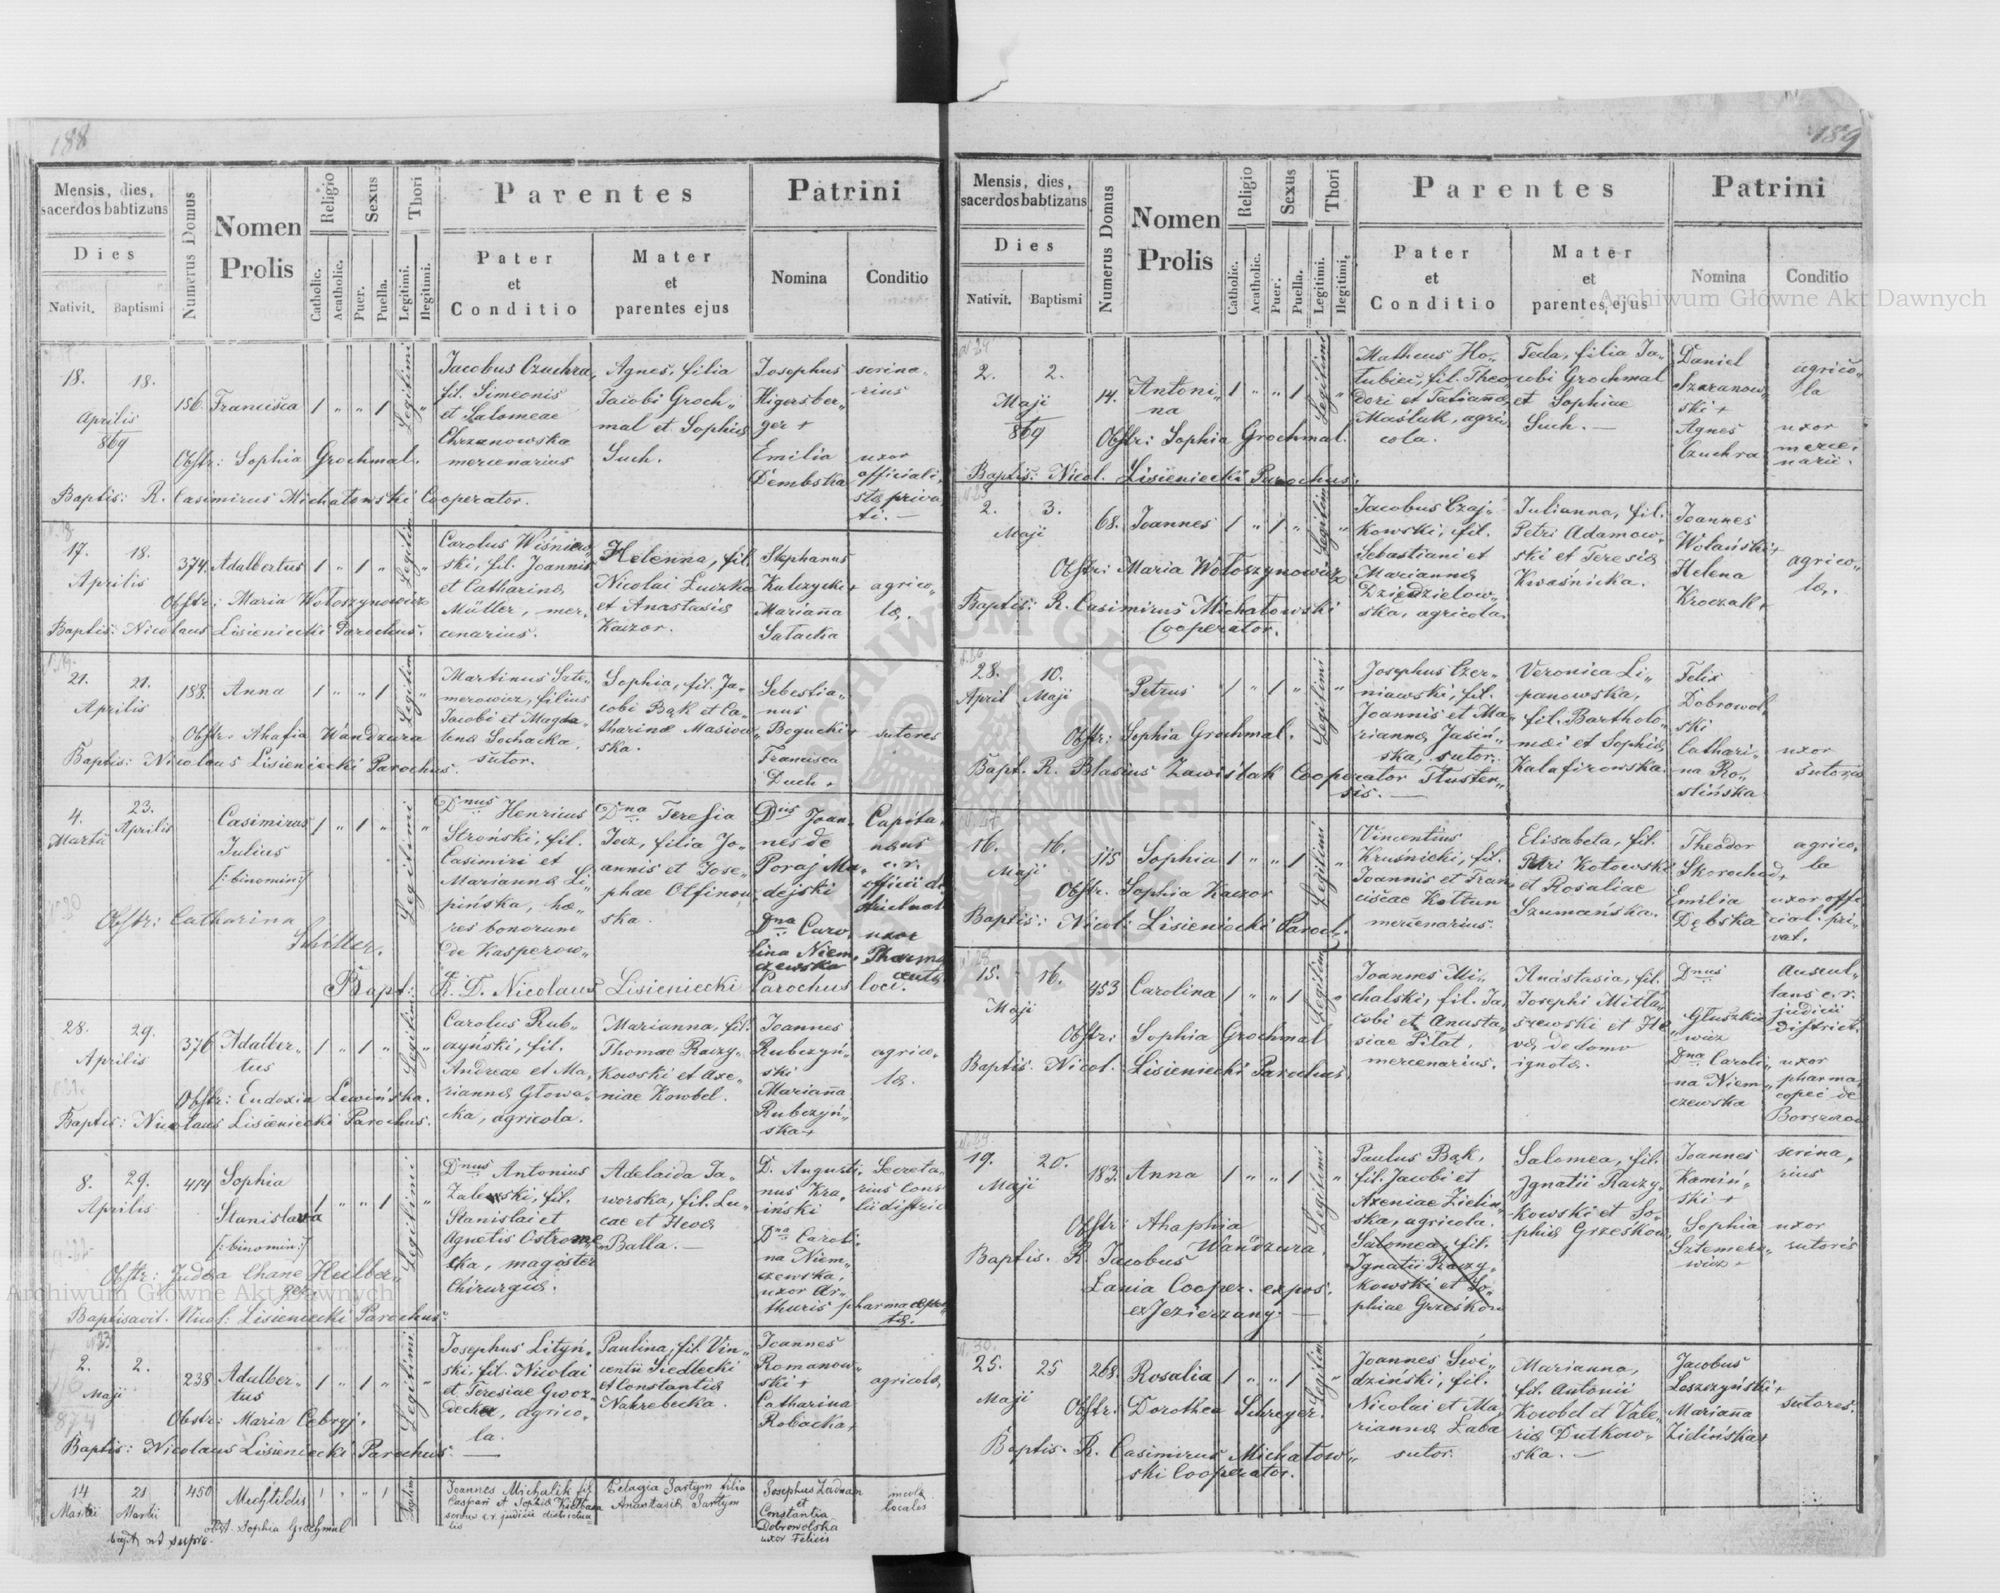 188
Mensis, dies,
sacerdos babtizans
Dies
Nativit. Baptismi
Numerus Domus
Nomen
Prolis
Religio
Catholic.
Acatholic.
Sexus
Puer.
Puella.
Thori
Legitimi.
Ilegitimi.
Parentes
Pater
et
Conditio
Mater
et
parentes ejus
Patrini
Nomina
Conditio
18. 18.
Aprilis
869
156 Francisca 1 " " 1 Legitimi "
Obstr: Sophia Grochmal.
Baptis: R. Casimirus Michałowski Cooperator.
Jacobus Czuchra,
fil. Simeonis
et Salomeae
Chrzanowska
mercenarius
Agnes, filia
Jacobi Groch"
mal et Sophiæ
Such.
Josephus
Higersber"
ger +
Emilia
Dembska
scrina"
rius
uxor
officiali"
stæ priva
ti. —
17. 18.
Aprilis
374. Adalbertus 1 " 1 " Legitim "
Obstr: Maria Wołoszynowicz
Baptis: Nicolaus Lisieniecki Parochus.
Carolus Wiśniew"
ski, fil. Joannis
et Catharinæ
Müller, mer"
cenarius.
Helenna, fil.
Nicolai Łuczka
et Anastasiæ
Kaczor.
Stephanus
Kulczycki +
Marianna
Sałacka
agrico"
læ.
21. 21.
Aprilis
188. Anna 1 " " 1 Legitim "
Obstr. Ahafia Wandzura
Baptis: Nicolaus Lisieniecki Parochus.
Martinus Szte"
merowicz, filius
Jacobi et Magda"
lenæ Sochacka,
sutor.
Sophia, fil. Ja"
cobi Bąk et Ca"
tharinæ Masiow"
ska.
Sebestia"
nus
Bogucki +
Francisca
Duch +
sutores
4. 23.
Martii Aprilis
Casimirus 1 " 1 " Legitimi "
Julius
/:binomin:/
Obstr: Catharina
Schiller.
Bapt: R. D. Nicolaus Lisieniecki Parochus loci.
Dnus Henricus
Stroński, fil.
Casimiri et
Mariannæ Li"
pińska, hæ"
res bonorum
de Kasperow"
Dna Teresia
Jocz, filia Jo"
annis et Jose"
phae Olfinow"
ska.
Dnus Joan"
nes de
Poraj Ma"
dejski
Dna Caro"
lina Niem"
czewska
Capita"
neus
c. r.
officii di"
strictual
uxor
Pharma
ceuta
28. 29.
Aprilis
376 Adalber" 1 " 1 " Legitimi "
tus
Obstr: Eudoxia Lewińska.
Baptis: Nicolaus Lisieniecki Parochus.
Carolus Rub"
czyński, fil.
Andreae et Ma"
riannæ Głowa"
cka, agricola.
Marianna, fil.
Thomae Raczy"
kowski et Axe"
niae Kowbel.
Joannes
Rubczyń"
ski
Marianna
Rubczyń"
ska +
agrico"
læ.
8. 29.
Aprilis
414 Sophia
Stanisława 1 " " 1 Legitimi "
/:binomin:/
Obstr: Judea Chane Heilber"
ger
Baptisavit. Nicol: Lisieniecki Parochus.
Dnus Antonius
Zalewski, fil.
Stanislai et
Agnetis Ostrome"
cka, magister
Chirurgiæ.
Adelaida Ja"
worska, fil. Lu"
cae et Hevæ
Balla. —
D. Augusti"
nus Kra"
iński
Dna Caroli"
na Niem"
czewska,
uxor Ar"
thuris pharmaceu"
tæ.
Secreta"
rius cons
lii distric
2. 2.
Maji
238 Adalber" 1 " 1 " Legitimi "
tus
Obstr: Maria Cebryj.
Baptis: Nicolaus Lisieniecki Parochus. —
Josephus Lityń"
ski, fil. Nicolai
et Teresiae Gwoz"
decka, agrico"
la.
Paulina, fil. Vin"
centii Siedlecki
et Constantiæ
Nakrebecka.
Joannes
Romanow"
ski +
Catharina
Robacka +
agricolæ
14 21
Martii Martii
450 Mechtildis 1 " " 1
obst. Sophia Grochmal
bapt. ut supra.
Joannes Michalik fil.
Caspari et Sophiæ Kiełbasa
c. r. judicii districtua
lis
Pelagia Sartym filia
Anastasiæ Sartym
Josephus Zadwan
et
Constantia
Dobrowolska
uxor Felicis
incola
localis
189
Mensis, dies,
sacerdos babtizans
Dies
Nativit. Baptismi
Numerus Domus
Nomen
Prolis
Religio
Catholic.
Acatholic.
Sexus
Puer.
Puella.
Thori
Legitimi.
Ilegitimi.
Parentes
Pater
et
Conditio
Mater
et
parentes ejus
Patrini
Nomina
Conditio
2. 2.
Maji
869
14. Antoni" 1 " " 1 Legitimi "
na
Obstr: Sophia Grochmal.
Baptis: Nicol. Lisieniecki Parochus.
Matheus Ho"
łubiec, fil. Theo"
dori et Tatiannæ
Maśluk, agri"
cola.
Tecla, filia Ja"
cobi Grochmal
et Sophiae
Such. —
Daniel
Szaranow"
ski +
Agnes
Czuchra
agrico"
la
uxor
merce"
narii.
2. 3.
Maji
68. Joannes 1 " 1 " Legitimi "
Obstr: Maria Wołoszynowicz
Baptis: R. Casimirus Michałowski
Cooperator.
Jacobus Czaj"
kowski, fil.
Sebastiani et
Mariannæ
Dziędzielow"
ska, agricola.
Julianna, fil.
Petri Adamow"
ski et Teresiæ
Kwaśnicka.
Joannes
Wolański +
Helena
Kroczak +
agrico"
læ.
28. 10.
April Maji
Petrus 1 " 1 " Legitimi "
Obstr: Sophia Grochmal.
Bapt. R. Blasius Zawiślak Cooperator Tłusten"
sis. —
Josephus Czer"
niawski, fil.
Joannis et Ma"
riannæ Jasiń"
ska, sutor.
Veronica Li"
panowska,
fil. Bartholo"
mæi et Sophiæ
Kalafirowska.
Felix
Dobrowol"
ski
Cathari"
na Ro"
slińska
uxor
sutoris
16. 16.
Maji
115 Sophia 1 " " 1 Legitimi "
Obstr. Sophia Kaczor
Baptis: Nicol: Lisieniecki Paroch.
Vincentius
Kruśnicki, fil.
Joannis et Fran"
ciscae Kołtun
mercenarius.
Elisabeta, fil.
Petri Kotowski
et Rosaliae
Szumańska.
Theodor
Skorochod +
Emilia
Dębska
agrico"
la
uxor offi
cial. pri"
vat.
15. 16.
Maji
453 Carolina 1 " " 1 Legitimi "
Obstr: Sophia Grochmal
Baptis. Nicol. Lisieniecki Parochus.
Joannes Mi"
chalski, fil. Ja"
cobi et Anasta"
siae Piłat,
mercenarius.
Anastasia, fil.
Josephi Mitła"
szewski et He
væ, de domo
ignotæ.
Dnus
Głuszkie"
wicz
Dna Caroli"
na Niem"
czewska
Auscul"
tans c. r.
judicii
district.
uxor
pharma"
copei de
Borszczow
19. 20.
Maji
183. Anna 1 " " 1 Legitimi "
Obstr: Ahaphia
Wandzura.
Baptis. R. Jacobus
Łania Cooper. expos.
ex Jezierzany. —
Paulus Bąk,
fil. Jacobi et
Axeniae Zielin"
ska, agricola.
Salomea, fil.
Ignatii Raczy"
kowski et So"
phiae Grześkow
Salomea, fil.
Ignatii Raczy"
kowski et So"
phiæ Grześkow
Joannes
Kamiń"
ski +
Sophia
Sztemero"
wicz +
scrina"
rius
uxor
sutoris
25. 25
Maji
268. Rosalia 1 " " 1 Legitim "
Obstr: Dorothea Schreyer.
Baptis. R. Casimirus Michałow"
ski Cooperator.
Joannes Świ"
dziński, fil.
Nicolai et Ma"
riannæ Łaba
sutor.
Marianna,
fil. Antonii
Kowbel et Vale"
riæ Dutkow"
ska. —
Jacobus
Łoszczyński +
Marianna
Zielińska +
sutores.
Archiwum Główne Akt Dawnych
Archiwum Główne Akt Dawnych
ARCHIWUM GŁÓWNE AKT DAWNYCH